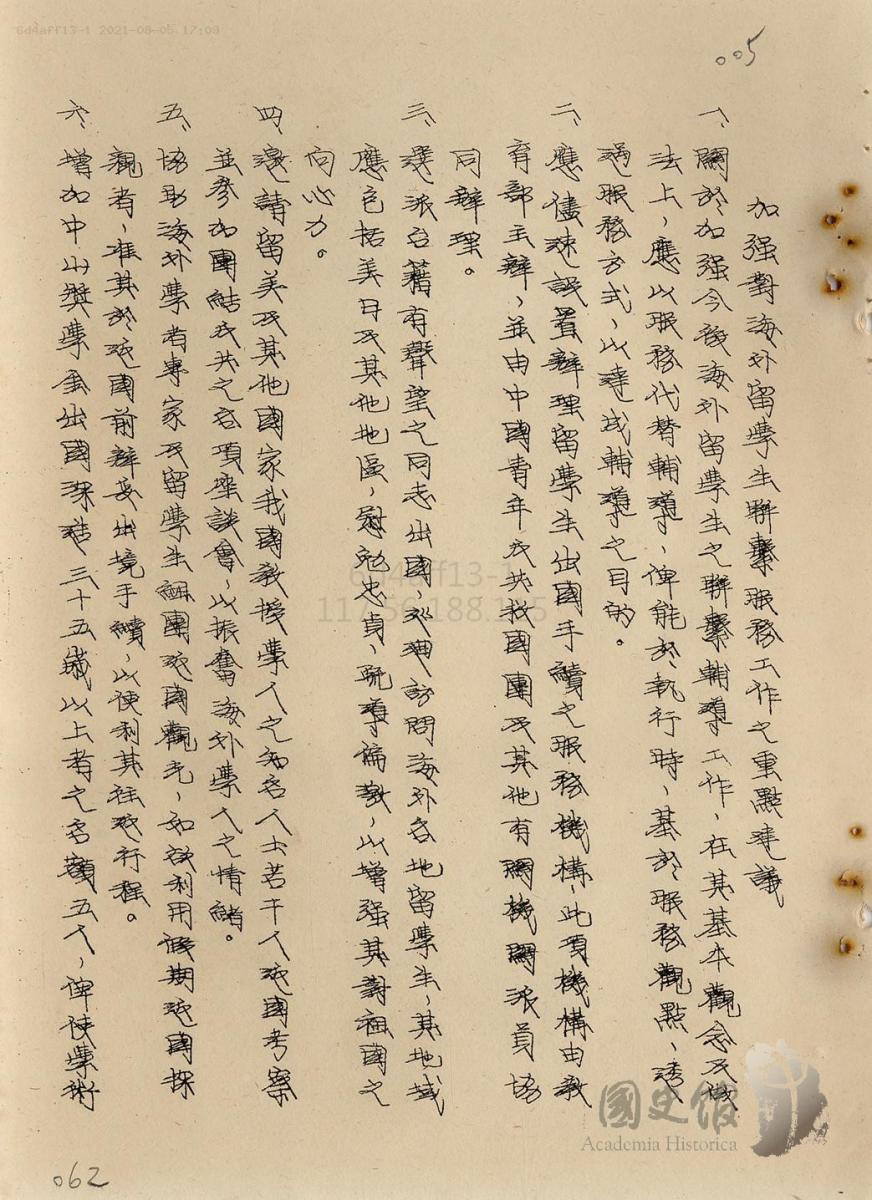 6d4aff13-1 2021-08-05 17:09
005
加强對海外留學生聯繫服務工作之重點建議
一、關於加强今後海外留學生之聯繫輔導工作，在其基本觀念及做
法上，應以服務代替輔導，俾能於執行時，基於服務觀點，透
過服務方式，以達成輔導之目的。
二、應儘速設置辦理留學生出國手續之服務機構，此項機構由教
育部主辦，並由中國青年反共救國團及其他有關機關派員協
同辦理。
三、選派台籍有聲望之同志出國，巡迴訪問海外各地留學生，其地域
應包括美日及其他地區，慰勉忠貞，疏導偏激，以增强其對祖國之
向心力。
四、邀請留美及其他國家我國教授學人之知名人士若干人返國考察
並參加團結反共之各項座談會，以振奮海外學人之情緒。
五、協助海外學者專家及留學生組團返國觀光，如欲利用假期返國探
親者，准其於返國前辦妥出境手續，以便利其往返行程。
六、增加中山獎學金出國深造三十五歲以上者之名額五人，俾使學術
6d4aff13-1
117.56.188.1 5
國史館
Academia Historica
062